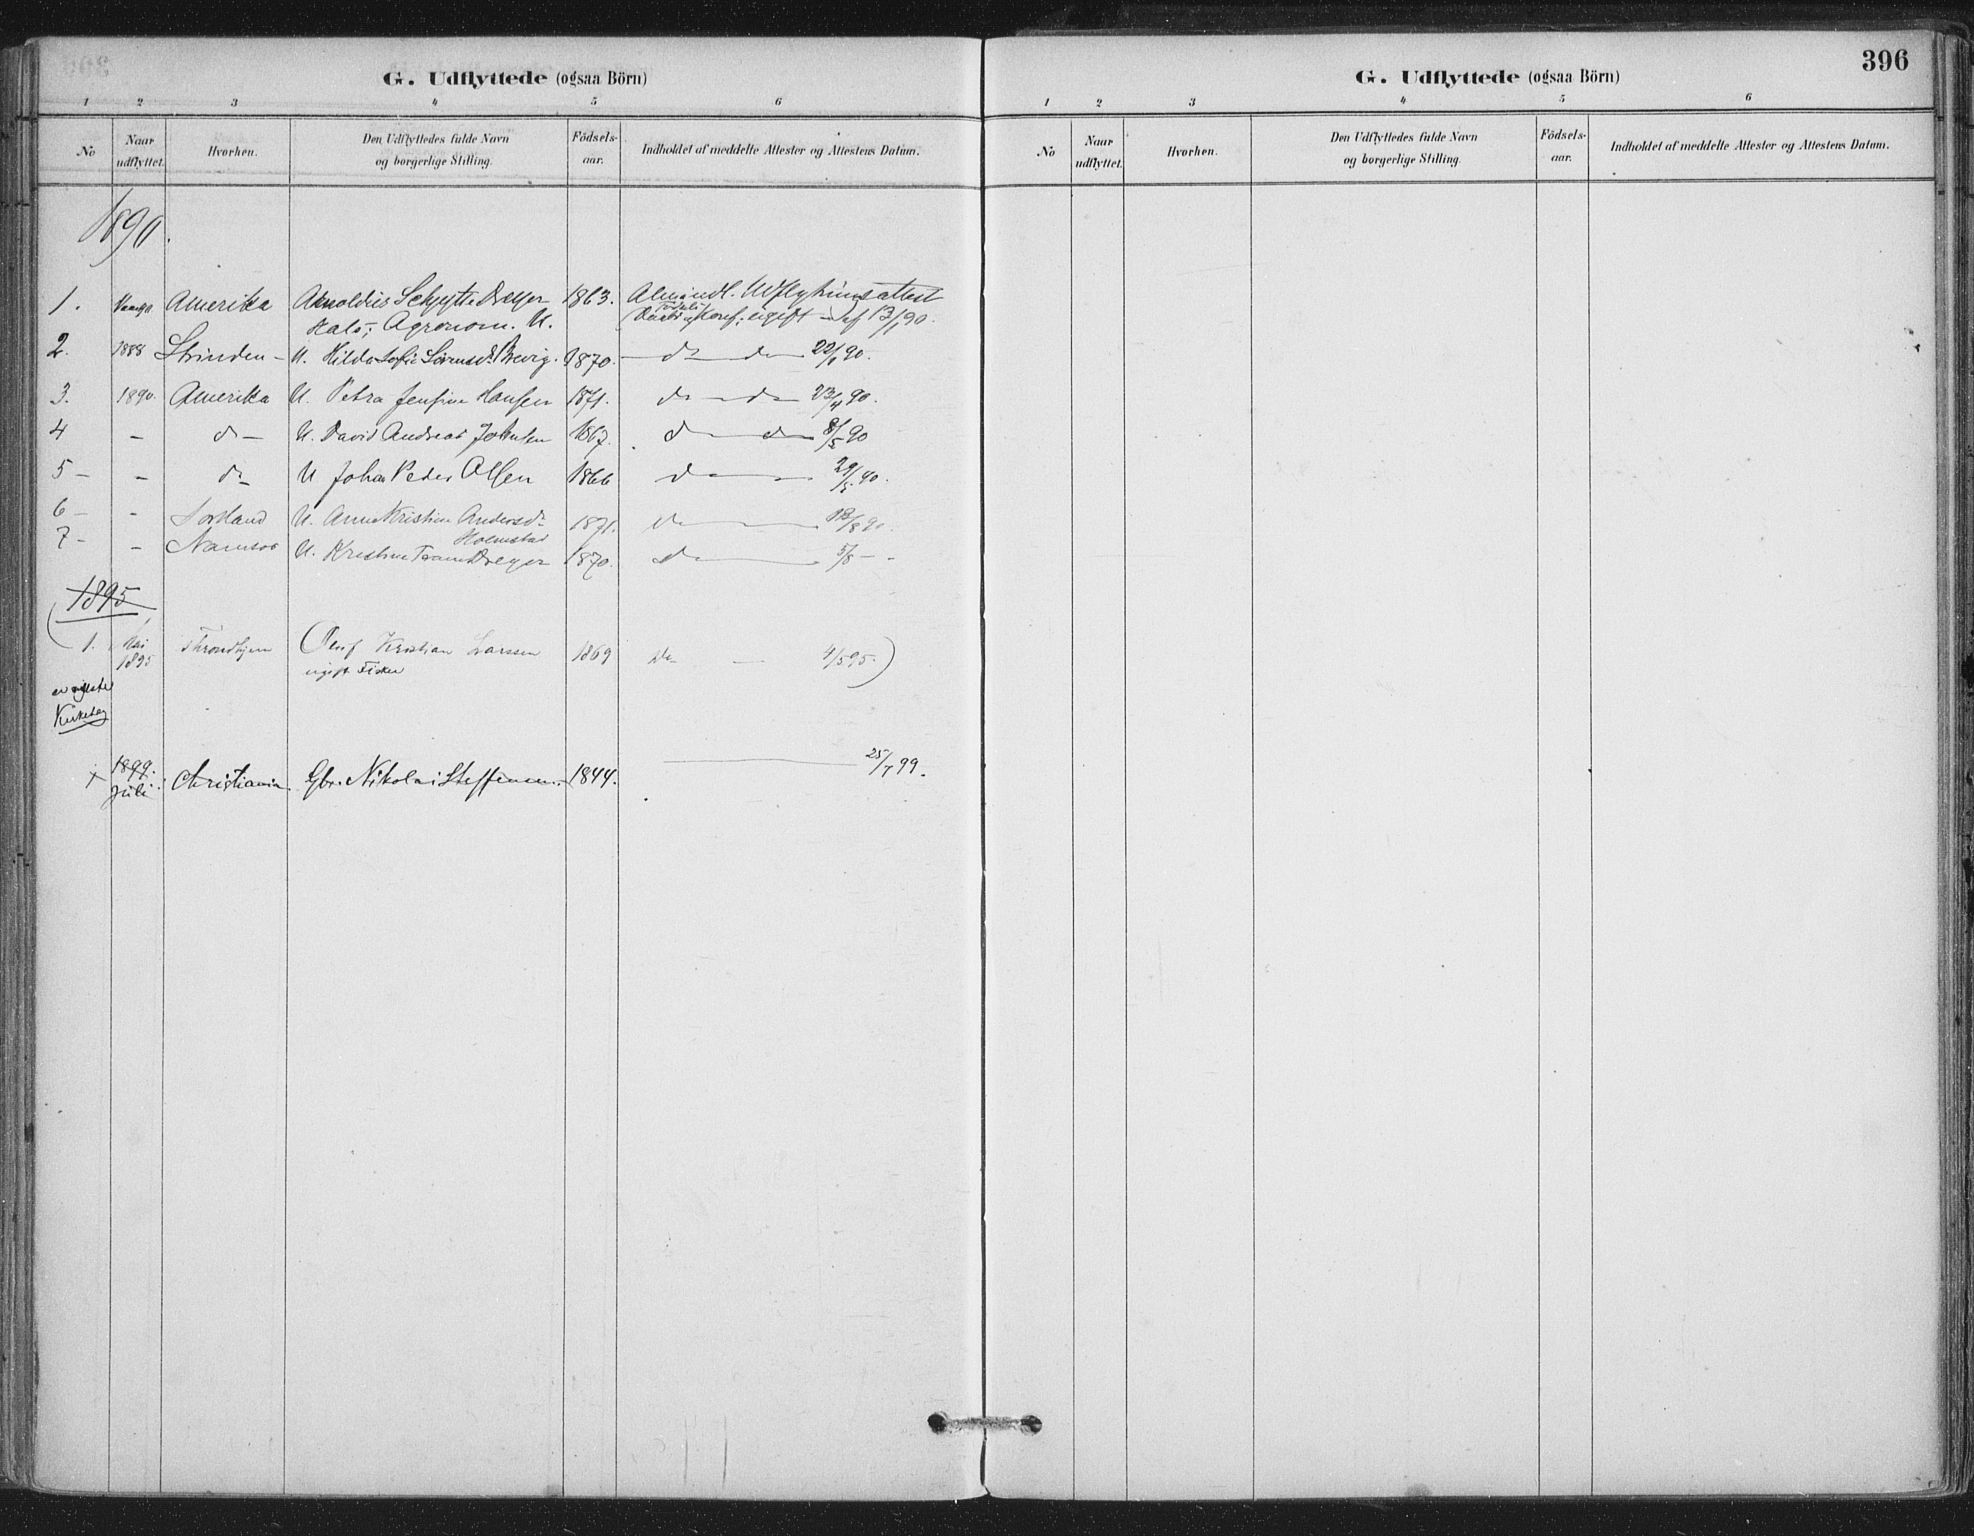 G. Udflyttede (ogsaa Börn)
1 2 3 4 5 6
No Naar udflyttet. Hvorhen. Den Udflyttedes fulde Navn og borgerlige Stilling. Födsels-aar. Indholdet af meddelte Attester og Attestens Datum.
1890.
1. Amerika Arnoldus Schytte Dreyer 1863. Almindl. Udflytningsattest
Hals, Agronom. U. Konf. ugift 13/1 90.
2. 1888 Strinden - U. Hilda Sofie Sörensd. Brevig. 1870. - do - do - 22/1 90.
3. 1890. Amerika U. Petra Jensine Hansen 1871. do - do - 23/4 90.
4 - do - U. David Andreas Johnsen 1867. do - do - 8/5 90
5 - - do - U Johan Peder Olsen 1866 do - 29/5 90.
6 - - Sortland U. Anne Kristine Andersd. 1871. do - 90.
Holmstad
7 - - Namsos U. Kristine Dreyer 1870. do - 5/8 - -
1895
( 1. Mai 1895 Throndhjem Oluf Kristian Larssen 1869 do - 4/5 95. )
ugift Fisker
Kirkebog
+ 1899. Juli. Christiania. Gbr. Nikolai Steffensen. 1844. 25/7 99.
396
G. Udflyttede (ogsaa Börn)
1 2 3 4 5 6
No Naar udflyttet. Hvorhen. Den Udflyttedes fulde Navn og borgerlige Stilling. Födsels-aar. Indholdet af meddelte Attester og Attestens Datum.